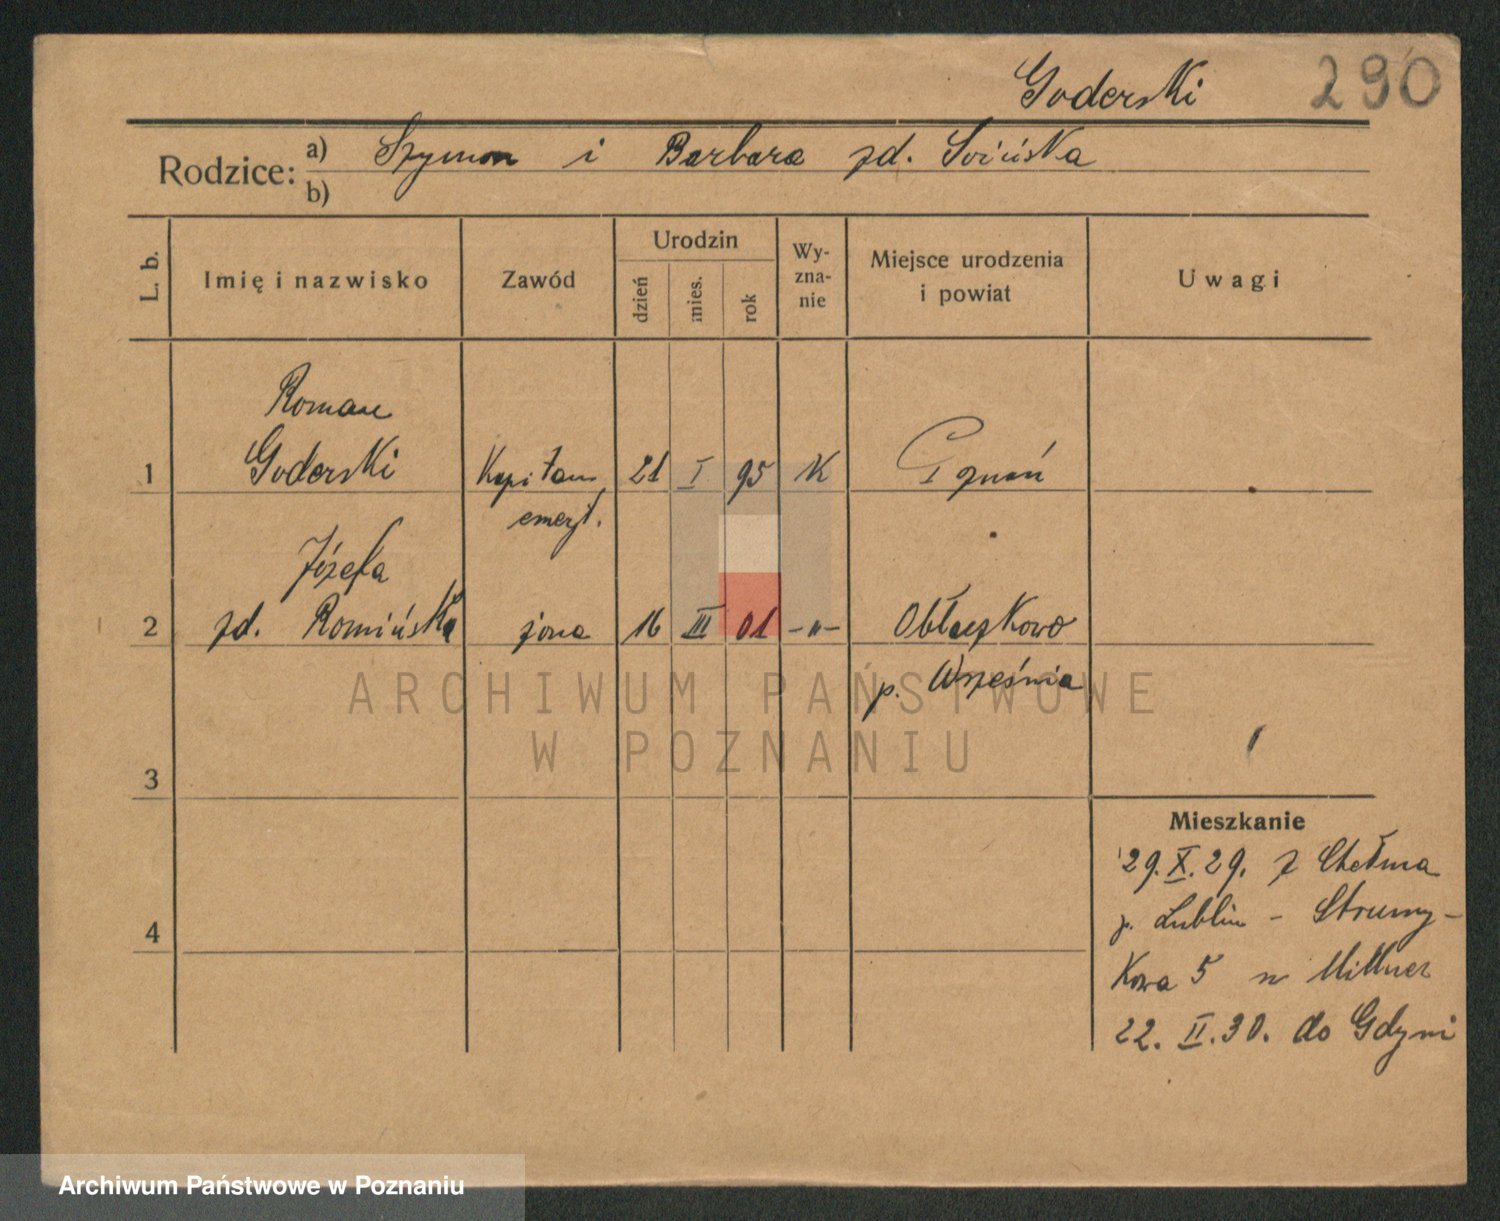 Goderski 290
Rodzice: a) Szymon i Barbara zd.
b)
L. b.
Imię i nazwisko
Zawód
Urodzin
dzień mies. rok
Wy-
zna-
nie
Miejsce urodzenia
i powiat
Uwagi
Roman
1 Goderski Kapitan 21 I 95 K Gznań
emeryt.
Józefa
2 zd. Romińska żona 16 III 01 -"- Obłaczkowo
p. Września
3
4
Mieszkanie
29.X.29. z Chełma
p. Lublin - Strumy-
kowa 5 u Mittner
22. II. 30. do Gdyni
ARCHIWUM PAŃSTWOWE
W POZNANIU
Archiwum Państwowe w Poznaniu